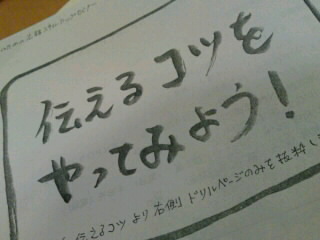 伝えるコツを
やってみよう!
伝えるコツ より 右側 ドリルページのみを 抜粋し